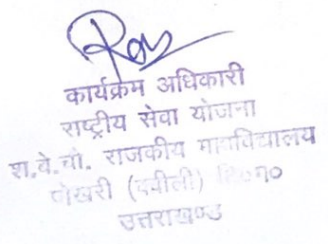 कार्यक्रम अधिकारी
राष्ट्रीय सेवा योजना
रा.बे.चौ. राजकीय महाविद्यालय
पोखरी (क्वीली)
उत्तराखण्ड